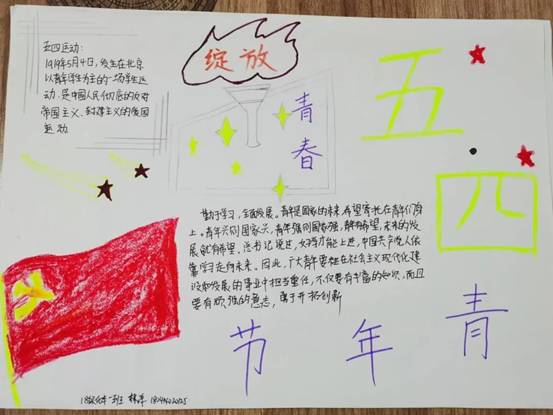 五四运动:
1919年5月4日,发生在北京
以青年学生为主的一场学生运
动,是中国人民彻底的反对
帝国主义、封建主义的爱国
运动
绽放
青
春
五
四
勤于学习,全面发展。青年是国家的未来,希望寄托在青年们身
上。青年兴则国家兴,青年强则国家强,青年有希望,未来的发
展就有希望,总书记说过,好学才能上进,中国共产党人依
靠学习走向未来。因此,广大青年要想在社会主义现代化建
设和发展的事业中担当重任,不仅要有丰富的知识,而且
要有顽强的意志,勇于开拓创新
青年节